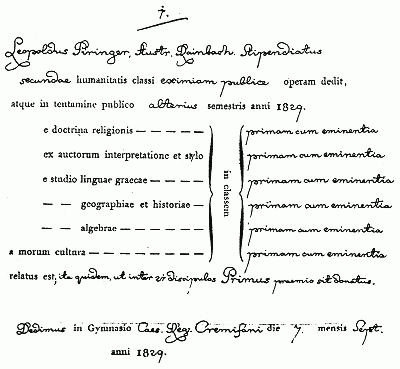 7.
Leopoldus Piringer, Austr. Hainbach. Stipendiatus
secundae humanitatis classi eximiam publice operam dedit,
atque in tentamine publico alterius semestris anni 1829.
e doctrina religionis — — — — — primam cum eminentia
ex auctorum interpretatione et stylo primam cum eminentia
e studio linguae graecae — — — — primam cum eminentia
— — geographiae et historiae — primam cum eminentia
— — algebrae — — — — — primam cum eminentia
a morum cultura — — — — — — primam cum eminentia
in classem
relatus est, ita quidem, ut inter 28 discipulos Primus praemio sit donatus.
Dedimus in Gymnasio Caes. Reg. Cremifani die 7. mensis Sept.
anni 1829.